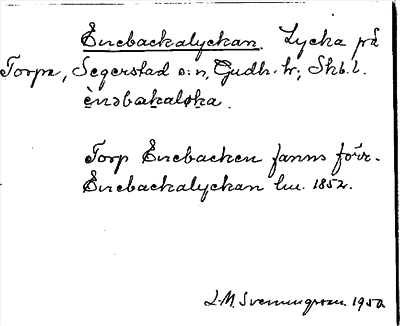 Enebackalyckan. Lycka på
Torpa, Segerstad s:n, Gudh. hr, Skb.l.
ènəbakaløka.
Torp Enebacken fanns förr.
Enebackalyckan lm. 1852.
L.M. Svenungsson. 1950